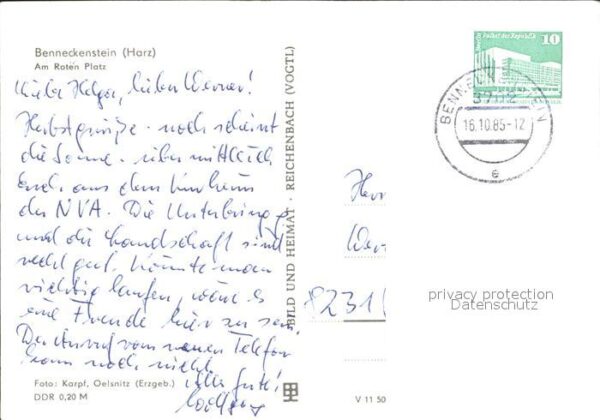 Benneckenstein (Harz)
Am Roten Platz
Liebe Helga, lieber Werner!
Herbstgrüße - noch scheint
die Sonne - übermittle ich
Euch aus dem Kurheim
der NVA. Die Unterbringg
und die Landschaft sind
recht gut. Könnte man
richtig laufen, wäre es
eine Freude hier zu sein.
Der Anruf vom neuen Telefon
kann noch nicht
Alles Gute!
Foto: Karpf, Oelsnitz (Erzgeb.)
DDR 0,20 M
BILD UND HEIMAT · REICHENBACH (VOGTL)
V 11 50
Palast der Republik
10
BENNECKENSTEIN
3702
16.10.85-12
e
Herrn
Wer
8231
privacy protection
Datenschutz